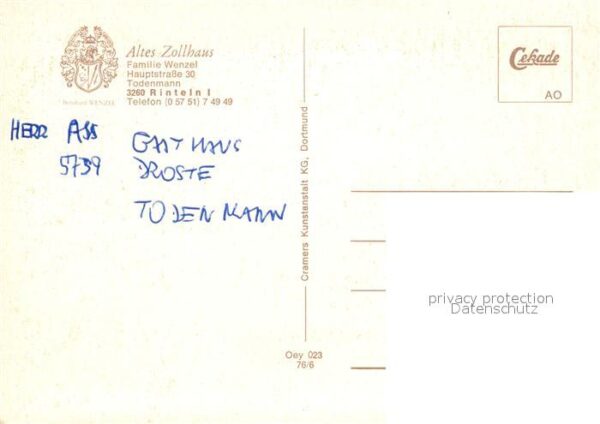 Altes Zollhaus
Familie Wenzel
Hauptstraße 30
Todenmann
3260 Rinteln I
Telefon (0 57 51) 7 49 49
Bernhard WENZEL
HERR ASS
5739
GAST HAUS
DROSTE
TODENMANN
Cramers Kunstanstalt KG, Dortmund
Oey 023
76/6
Cekade
AO
privacy protection
Datenschutz